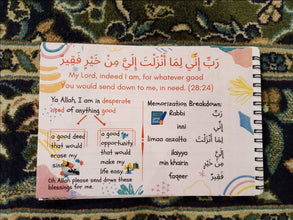 رَبِّ إِنِّي لِمَا أَنْزَلْتَ إِلَيَّ مِنْ خَيْرٍ فَقِير
My Lord, indeed I am, for whatever good
You would send down to me, in need. (28:24)
Ya Allah, I am in desperate
need of anything good
a good deed
that would
erase my
a good
opportunity
that would
make my
life easy
Oh Allah please send down these
blessings for me.
Memorization Breakdown:
Rabbi رَبِّ
inni إِنِّي
limaa anzalta لِمَا أَنْزَلْتَ
ilayya إِلَيَّ
min khairin مِنْ خَيْرٍ
faqeer فَقِيرٌ